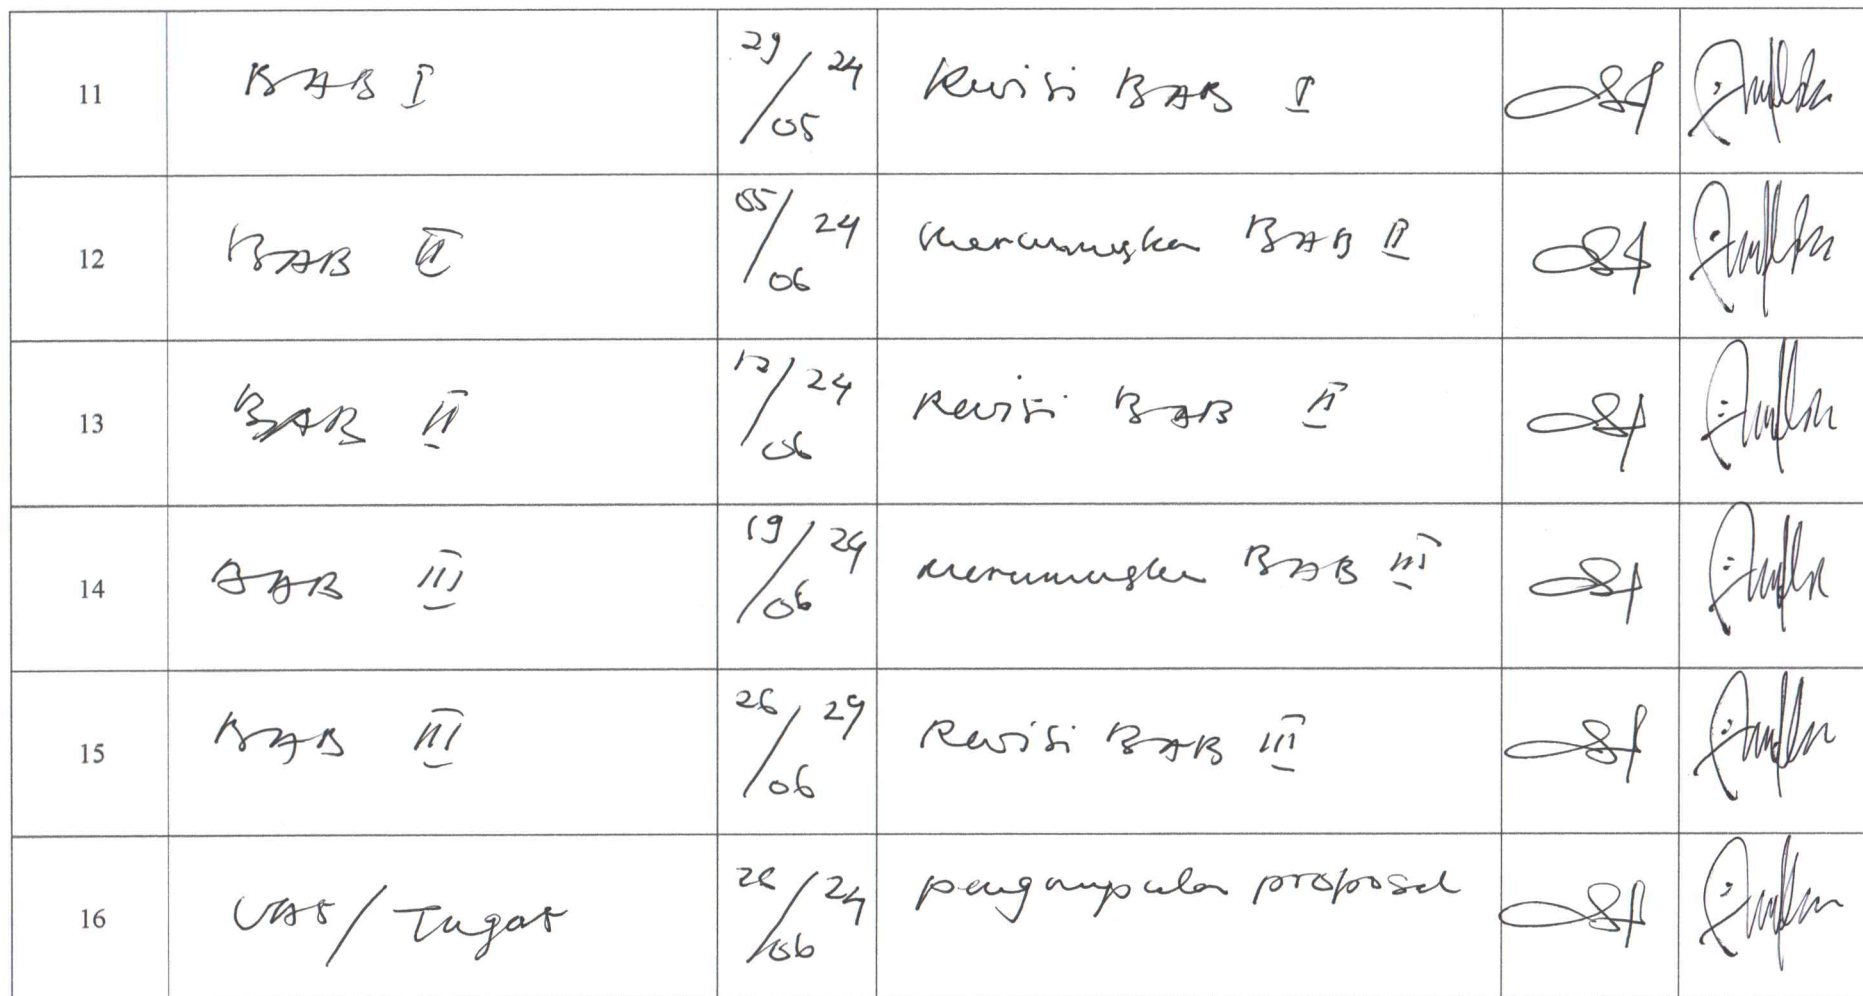 11 BAB I 29/05 24 Revisi BAB I
12 BAB II 05/06 24 merumuska BAB II
13 BAB II 12/06 24 Revisi BAB II
14 BAB III 19/06 24 merumuska BAB III
15 BAB III 26/06 24 Revisi BAB III
16 UAS/Tugas 26/06 24 pengumpulan proposal